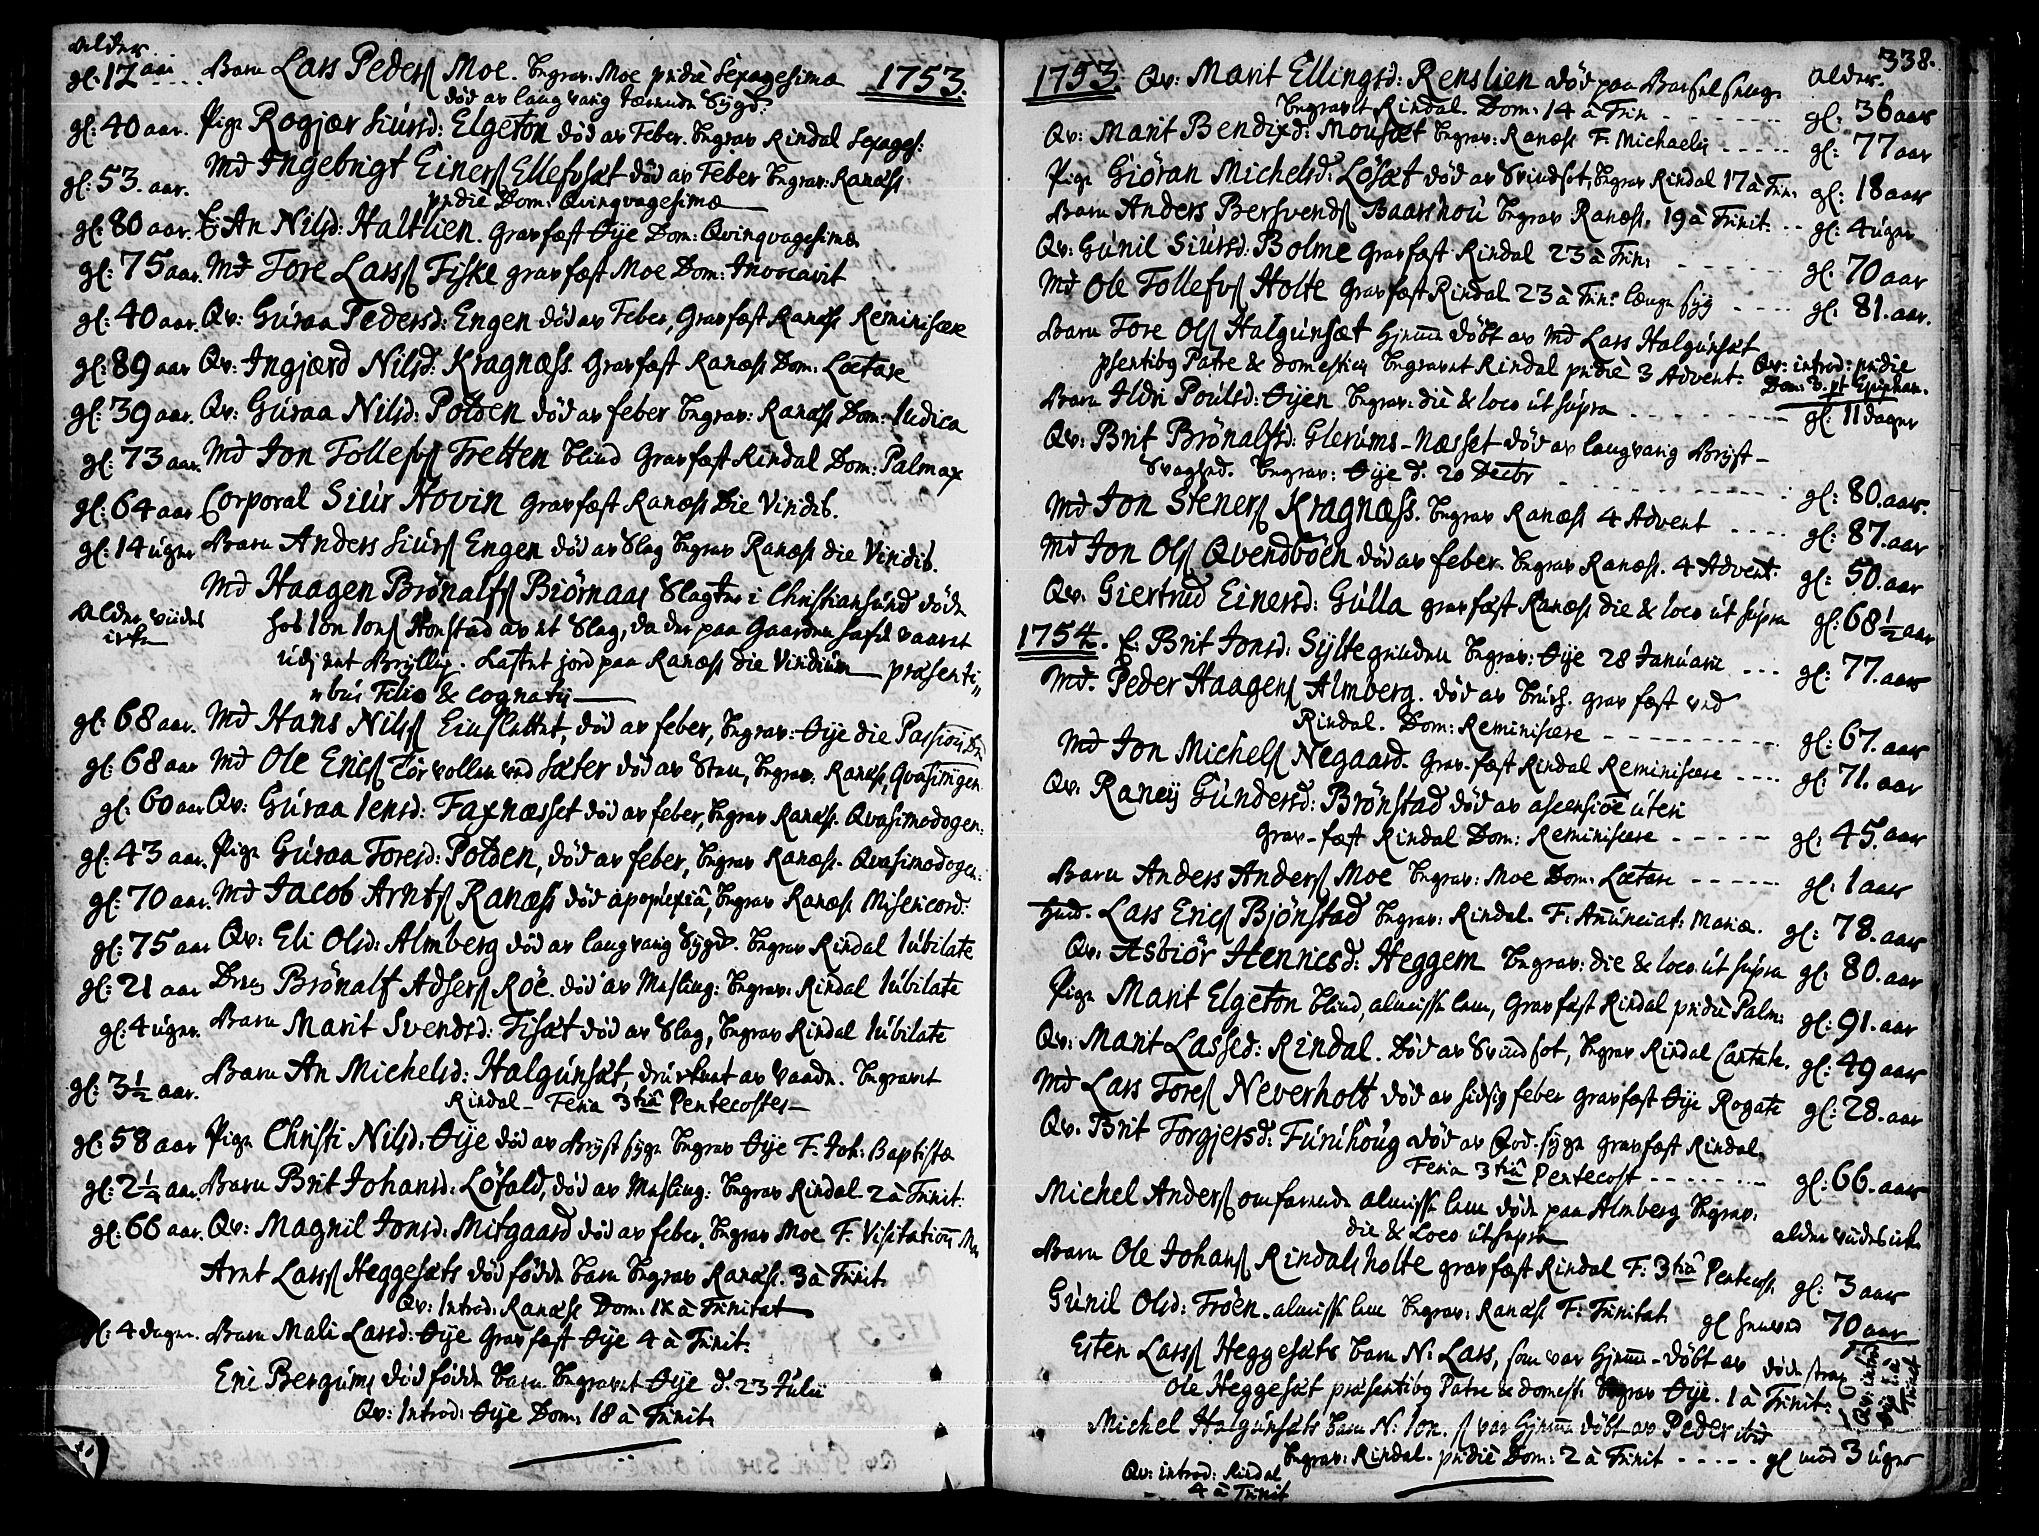 alder
gl: 17 aar Barn Lars Pedersſ Moe. begrav: Moe pridiè Sexagesimæ 1753.
død av langvarig tærende Sygd:
gl: 40 aar. Pige Rogjær Siursd: Elgeton død av Feber. begrav Rindal Sexages:
gl: 53. aar. Md Ingebrigt Einersſ Ellefsæt død av Feber begrav: Ranæs
pridiè Dom: Qvinqvagesimæ
gl: 80 aar. E: An Nilsd: Haltlien. gravfæst Øye Dom: Qvinqvagesimæ
gl: 75 aar. Md Tore Larsſ Fiske gravfæst Moe Dom: Invocavit
gl: 40 aar. Qv: Guraa Pedersd: Engen død av Feber, gravfæst Ranæs Reminiscere
gl: 89 aar Qv: Ingjærd Nilsd: Kragnæss. gravfæst Ranæss Dom: Lætare
gl: 39 aar. Qv: Guraa Nilsd: Polden død av feber begrav: Ranæss Dom: Iudica
gl: 73 aar. Md Jon Tollefsſ Tretten blind gravfæst Rindal Dom: Palmar
gl: 64 aar Corporal Siur Hovin gravfæst Ranæss Die Viridib.
gl: 14 uger Barn Anders Siursſ Engen død av Slag begrav Ranæss die Viridib.
Md Haagen Brønalfsſ Biørnaas Slagter i Christiansund døde
alder vides hos Ion Ionsſ Honstad av et Slag, da der paa Gaarden hafde vaaret
icke udj eet Bryllup. kastet jord paa Ranæss die Viridium præsenti-
-bus Filio & Cognatis
gl: 68 aar. Md Hans Nilsſ død av feber, begrav: Øye die Passionis
gl: 68 aar Md Ole Ericsſ Tørvollen ved Sæter død av Steen, begrav: Ranæs, Qvasimogen
gl: 60 aar Qv: Guraa Iensd: Faxnæsset død av feber, begrav Ranæss. Qvasimodogen:
gl: 43 aar. Pige Guraa Toresd: Polden, død av feber, begrav Ranæss. Qvasimodogen:
gl: 70 aar. Md Jacob Arntsſ Ranæss død apoplexiâ, begrav Ranæss Misericord:
gl: 75 aar Qv: Eli Olsd: Almberg død av langvarig Sygd. begrav Rindal Iubilate
gl: 21 aar Dreng Brønalf Adsersſ Røe. død av Masling: begrav: Rindal Iubilate
gl: 4 uger. Barn Marit Svendsd: Fisæt død av Slag, begrav Rindal Iubilate
gl: 3½ aar. Barn An Michelsd: Halgunsæt, druknet av Vaade. begravet
Rindal – Feria 3tiâ Pentecostes –
gl: 58 aar Pige Christi Nilsd: Øye død av Brystsyge begrav Øye F. Joh: Baptistæ
gl: 2¼ aar. Barn Brit Johansd: Løfald, død av Masling: begrav Rindal 2 à Trinit:
gl: 66 aar. Qv: Magnil Jonsd: Mitgaard død av feber. begrav Moe F. Visitationis Ma
Arnt Larsſ Heggesæts død fødde barn begrav Ranæss. 3 à Trinit.
Qv: Introd: Ranæss Dom: IX à Trinitat
gl: 4 dager. Barn Mali Larsd: Øye gravfæst Øye 4 à Trinit:
Eric Bergums død fødde barn begravet Øye d. 23 Julii
Qv: Introd: Øye Dom: 18 à Trinit.
338.
1753. Qv: Marit Ellingsd: Renslien død paa Barselseng alder.
begravet Rindal. Dom: 14 à Trin gl: 36 aar
Qv: Marit Bendixd: Mousæt begrav: Ranæss F. Michaelis gl: 77 aar
Pige Giøran Michelsd: Løsæt død av Svindsot, begrav Rindal 17 à Trin: gl: 18 aar
Barn Anders Bersvendsſ Baarshou begrav Ranæss. 19 à Trinit. gl: 4 uger
Qv: Gunil Siursd: Bolme gravfæst Rindal 23 à Trin: gl: 70 aar
Md Ole Tollefsſ Holte gravfæst Rindal 23 à Trin: længe syg gl: 81. aar.
Barn Tore Olsſ Halgunsæt hjemme døbt av Md Lars Halgunsæt
psentibg Patre & domesticis begravet Rindal pridiè 3 Advent: Qv: introd: pridie
Dom: 3. pt Epiphan.
Barn Ildri Poulsd: Øyen begrav: diè & loco ut supra gl: 11 dager
Qv: Brit Brønalfsd: Glerums-Næsset død av langvarig Bryst-
Svaghed. begrav: Øye d. 20 Decbr gl: 80. aar.
Md Jon Stenersſ Kragnæss. begrav Ranæss 4 Advent gl: 87. aar
Md Jon Olsſ Qvendbøen død av feber. begrav Ranæss. 4 Advent. gl: 50. aar
Qv: Giertrud Einersd: Gulla gravfæst Ranæss die & loco ut supra gl: 68½ aar
1754. E: Brit Jonsd: Sylte begrav: Øye 28 Januarii gl: 77. aar
Md. Peder Haagensſ Almberg. død av bruch. gravfæst ved
Rindal. Dom: Reminiscere gl: 67. aar
Md Jon Michelsſ Negaard. grav-fæst Rindal Reminiscere gl: 71. aar
Qv: Raney Gundersd: Brønstad død av ascensiōe uteri
grav-fæst Rindal Dom: Reminiscere gl: 45. aar
Barn Anders Andersſ Moe begrav: Moe Dom: Lætare gl: 1 aar
Huusb. Lars Ericsſ Bjønstad begrav: Rindal. F: Anūnciat: Mariæ. gl: 78. aar
Qv: Asbiør Hennicsd: Heggem begrav: die & loco ut supra gl: 80. aar
Pige Marit Elgeton blind, almisse lem, gravfæst Rindal pridiè Palm: gl: 91. aar
Qv: Marit Lassed: Rindal. død av Svindsot, begrav Rindal Cantate. gl: 49 aar
Md Lars Toresſ Neverholt død av hidsig feber gravfæst Øye Rogate gl: 28. aar
Qv: Brit Torgjersd: Funihoug død av Qod-syge gravfæst Rindal.
Feria 3tiâ Pentecost gl: 66. aar
Michel Andersſ omfarende almisse lem døde paa Almberg begrav.
die & Loco ut supra alder vides icke
Barn Ole Johansſ Rindalsholte gravfæst Rindal F: 3tiâ Pentecoss. gl: 3 aar
Gunil Olsd: Trøen. almisse lem begrav: Ranæss F: Trinitat. gl henved 70 aar
Esten Larsſ Heggesæts barn N: Lars, som var hjemme-døbt av døde strax
Ole Heggesæt præsentibg Patre & domest: begrav Øye. 1 à Trinit: Qv: introd Øye à Trinit
Michel Halgunsæts barn N: Ion. ſ var hjemme døbt av Peder ibid
begrav: Rindal. pridiè Dom: 2 à Trinit gl med 3 uger
Qv: introd: Rindal
4 à Trinit